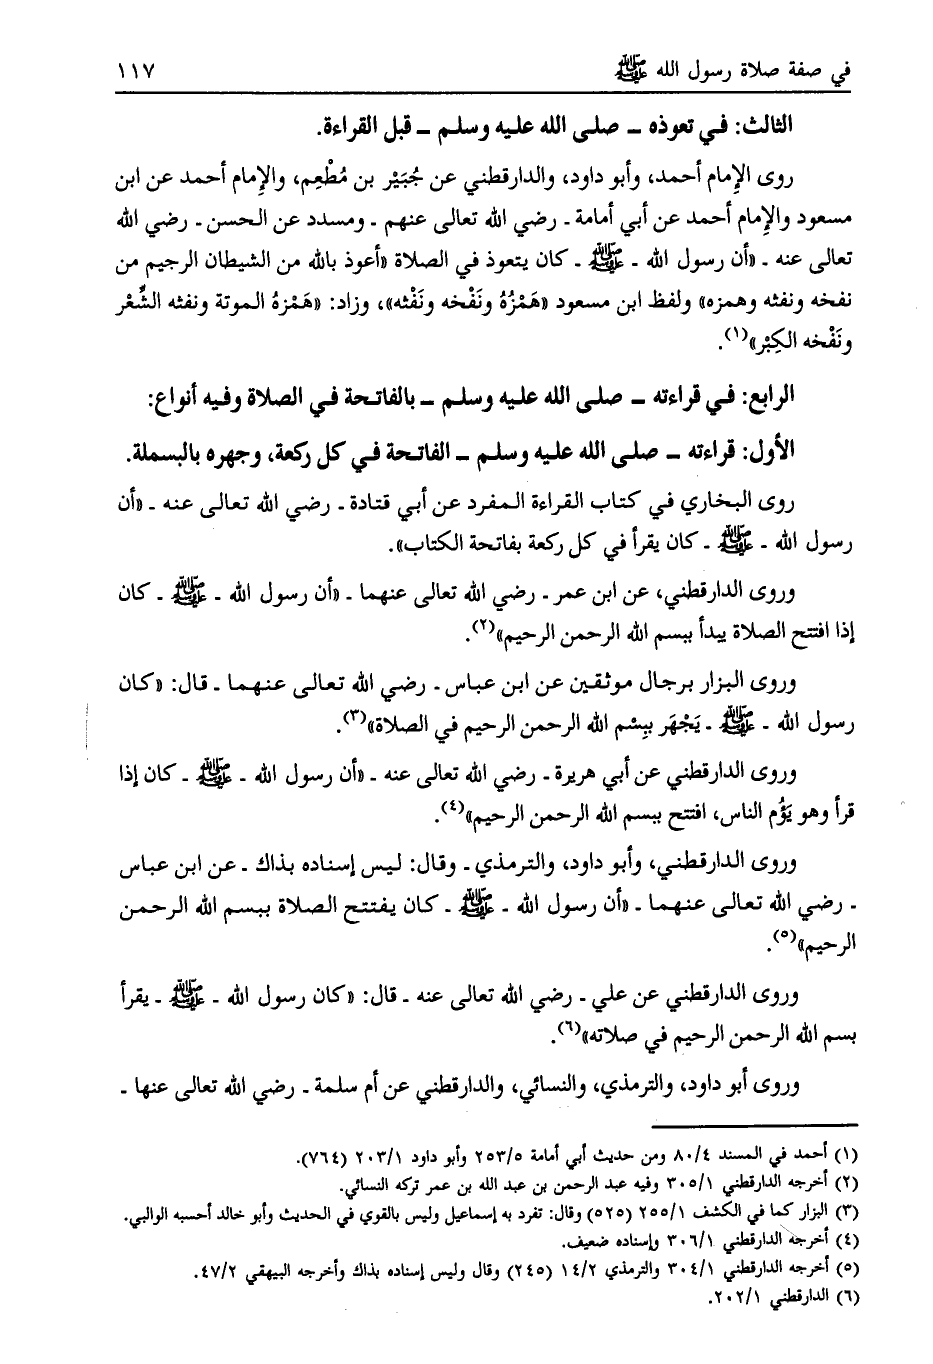 في صفة صلاة رسول الله ﷺ ١١٧
الثالث: في تعوذه ـ صلى الله عليه وسلم ـ قبل القراءة.
روى الإِمام أحمد، وأبو داود، والدارقطني عن جُبَيْر بن مُطْعِم، والإِمام أحمد عن ابن
مسعود والإِمام أحمد عن أبي أمامة ـ رضي الله تعالى عنهم ـ ومسدد عن الحسن ـ رضي الله
تعالى عنه ـ «أن رسول الله ـ ﷺ ـ كان يتعوذ في الصلاة «أعوذ بالله من الشيطان الرجيم من
نفخه ونفثه وهمزه» ولفظ ابن مسعود «هَمْزُهُ ونَفْخه ونَفْثه»، وزاد: «هَمْزهُ الموتة ونفثه الشِّعْر
ونَفْخه الكِبْر»(١).
الرابع: في قراءته ـ صلى الله عليه وسلم ـ بالفاتحة في الصلاة وفيه أنواع:
الأول: قراءته ـ صلى الله عليه وسلم ـ الفاتحة في كل ركعة، وجهره بالبسملة.
روى البخاري في كتاب القراءة المفرد عن أبي قتادة ـ رضي الله تعالى عنه ـ «أن
رسول الله ـ ﷺ ـ كان يقرأ في كل ركعة بفاتحة الكتاب».
وروى الدارقطني، عن ابن عمر ـ رضي الله تعالى عنهما ـ «أن رسول الله ـ ﷺ ـ كان
إذا افتتح الصلاة يبدأ ببسم الله الرحمن الرحيم»(٢).
وروى البزار برجال موثقين عن ابن عباس ـ رضي الله تعالى عنهما ـ قال: «كان
رسول الله ـ ﷺ ـ يَجْهَر ببِسْم الله الرحمن الرحيم في الصلاة»(٣).
وروى الدارقطني عن أبي هريرة ـ رضي الله تعالى عنه ـ «أن رسول الله ـ ﷺ ـ كان إذا
قرأ وهو يَؤُم الناس، افتتح ببسم الله الرحمن الرحيم»(٤).
وروى الدارقطني، وأبو داود، والترمذي ـ وقال: ليس إسناده بذاك ـ عن ابن عباس
ـ رضي الله تعالى عنهما ـ «أن رسول الله ـ ﷺ ـ كان يفتتح الصلاة ببسم الله الرحمن
الرحيم»(٥).
وروى الدارقطني عن علي ـ رضي الله تعالى عنه ـ قال: «كان رسول الله ـ ﷺ ـ يقرأ
بسم الله الرحمن الرحيم في صلاته»(٦).
وروى أبو داود، والترمذي، والنسائي، والدارقطني عن أم سلمة ـ رضي الله تعالى عنها ـ
(١) أحمد في المسند ٨٠/٤ ومن حديث أبي أمامة ٢٥٣/٥ وأبو داود ٢٠٣/١ (٧٦٤).
(٢) أخرجه الدارقطني ٣٠٥/١ وفيه عبد الرحمن بن عبد الله بن عمر تركه النسائي.
(٣) البزار كما في الكشف ٢٥٥/١ (٥٢٥) وقال: تفرد به إسماعيل وليس بالقوي في الحديث وأبو خالد أحسبه الوالبي.
(٤) أخرجه الدارقطني ٣٠٦/١ وإسناده ضعيف.
(٥) أخرجه الدارقطني ٣٠٤/١ والترمذي ١٤/٢ (٢٤٥) وقال وليس إسناده بذاك وأخرجه البيهقي ٤٧/٢.
(٦) الدارقطني ٢٠٢/١.